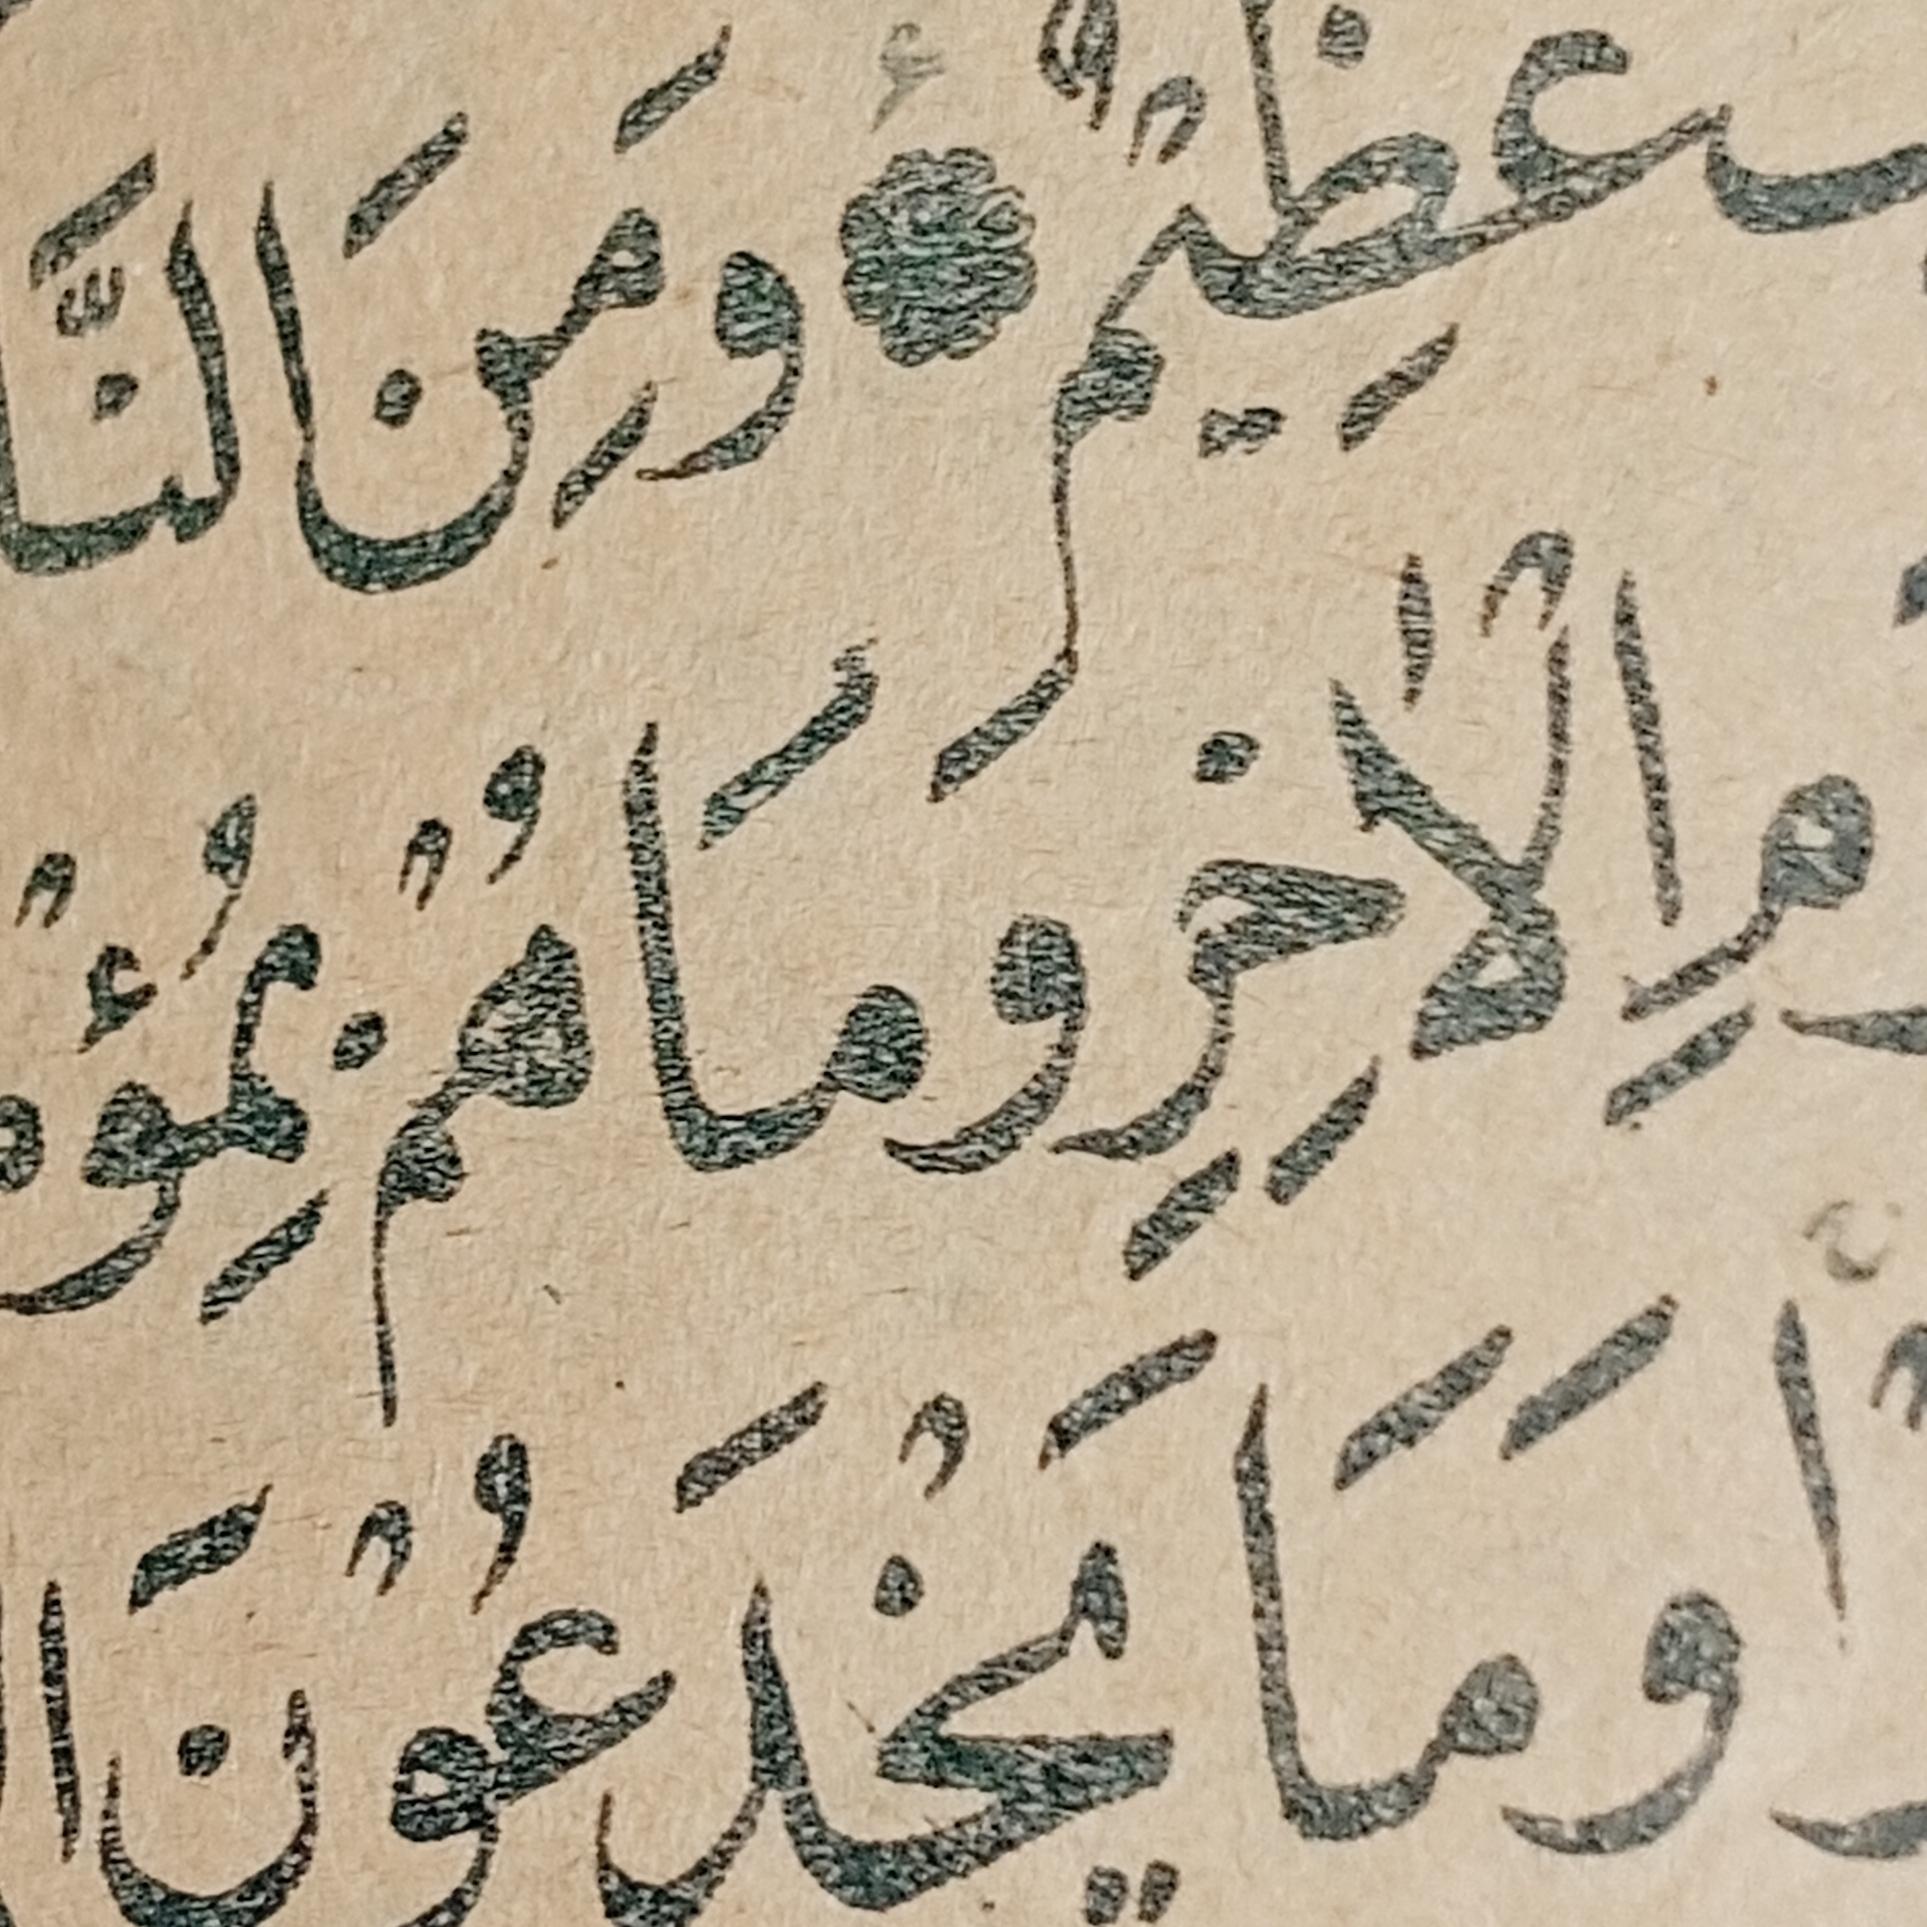 عَظِيْمٌ وَمِنَ النَّا
مِ الْاٰخِرِ وَمَا هُمْ بِمُؤْمِ
وَمَا يَخْدَعُوْنَ